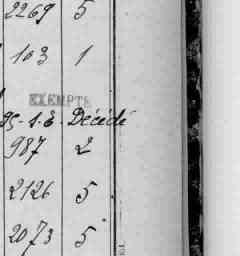 2269 5
103 1
EXEMPTE
S.E. Décédé
987 2
2126 5
2073 5